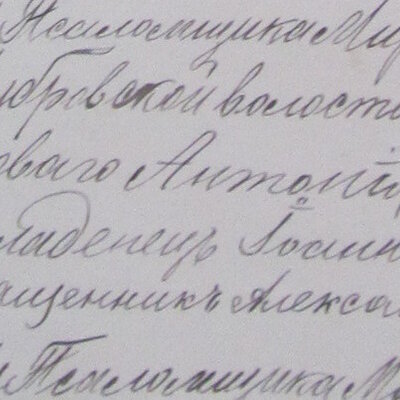 Псаломщика Мир
бровской волости
ваго Антоній
младенецъ Іоанн
ащенникъ Алекса
Псаломщика М